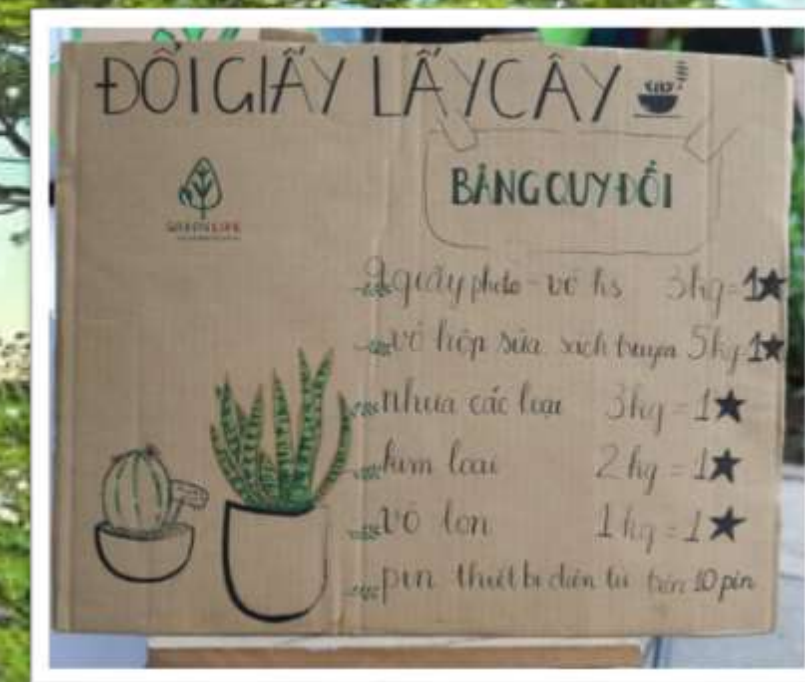 ĐỔI GIẤY LẤY CÂY
GREEN LIFE
BẢNG QUY ĐỔI
giấy photo - vở hs 3kg = 1★
vỏ hộp sữa sách truyện 5kg = 1★
nhựa các loại 3kg = 1★
kim loại 2kg = 1★
vỏ lon 1kg = 1★
pin thiết bị điện tử trên 10 pin